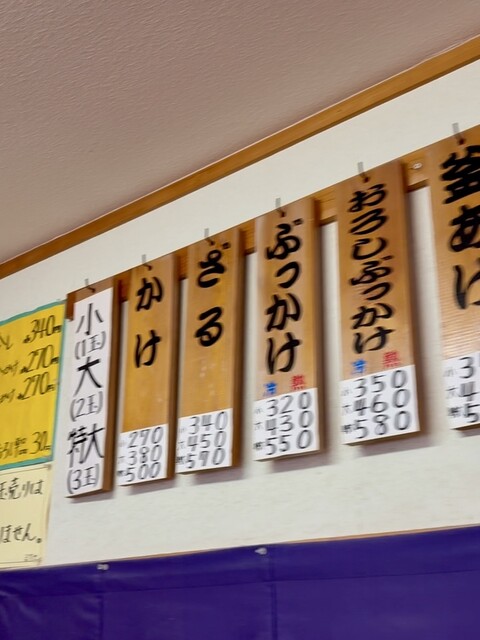 340円
270円
270円
30円
売りは
ません。
小
(1玉)
大
(2玉)
特大
(3玉)
かけ
小 270
大 380
特 500
ざる
小 340
大 450
特 590
ぶっかけ
冷 熱
小 320
大 430
特 550
おろしぶっかけ
冷 熱
小 350
大 460
特 580
釜あげ